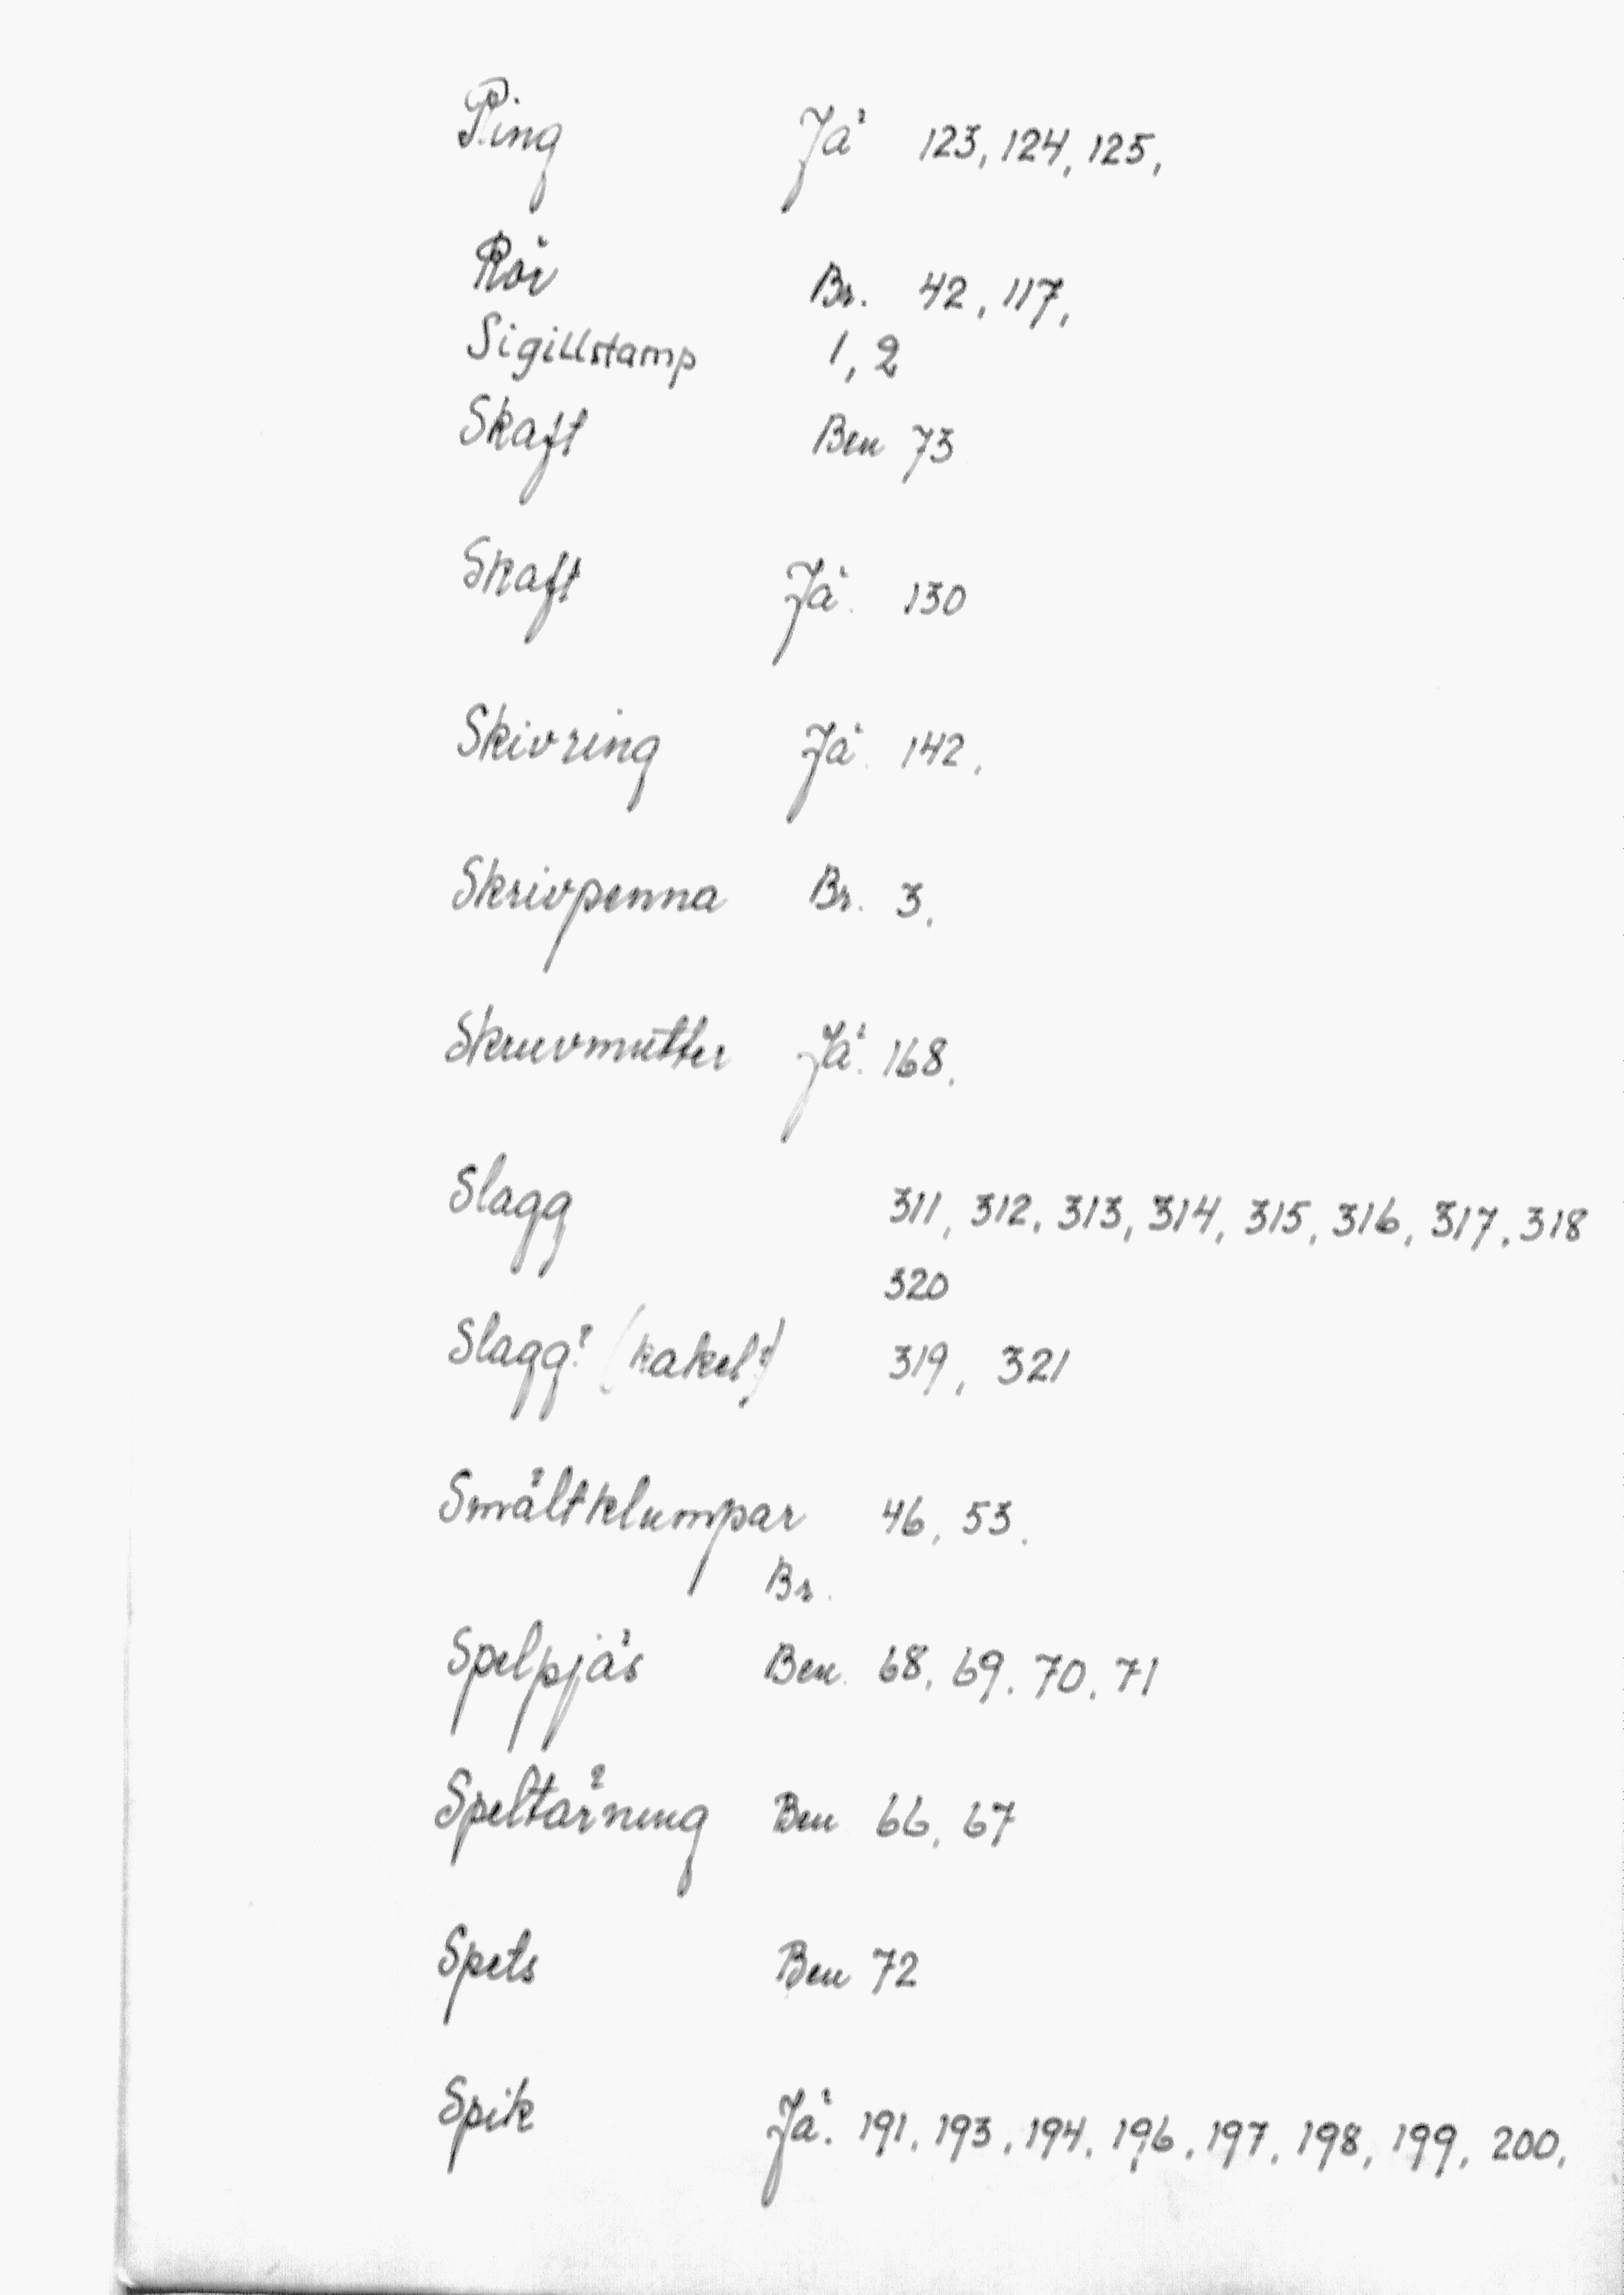 Ring Jä 123, 124, 125,
Rör Br. 42, 117,
Sigillstamp 1, 2
Skaft Ben 73
Skaft Jä. 130
Skivring Jä. 142.
Skrivpenna Br. 3.
Skruvmutter Jä. 168.
Slagg 311, 312, 313, 314, 315, 316, 317, 318
320
Slagg? (kakel?) 319, 321
Smältklumpar 46, 53.
Br.
Spelpjäs Ben. 68, 69, 70, 71
Speltärning Ben 66, 67
Spets Ben 72
Spik Jä. 191, 193, 194, 196, 197, 198, 199, 200,